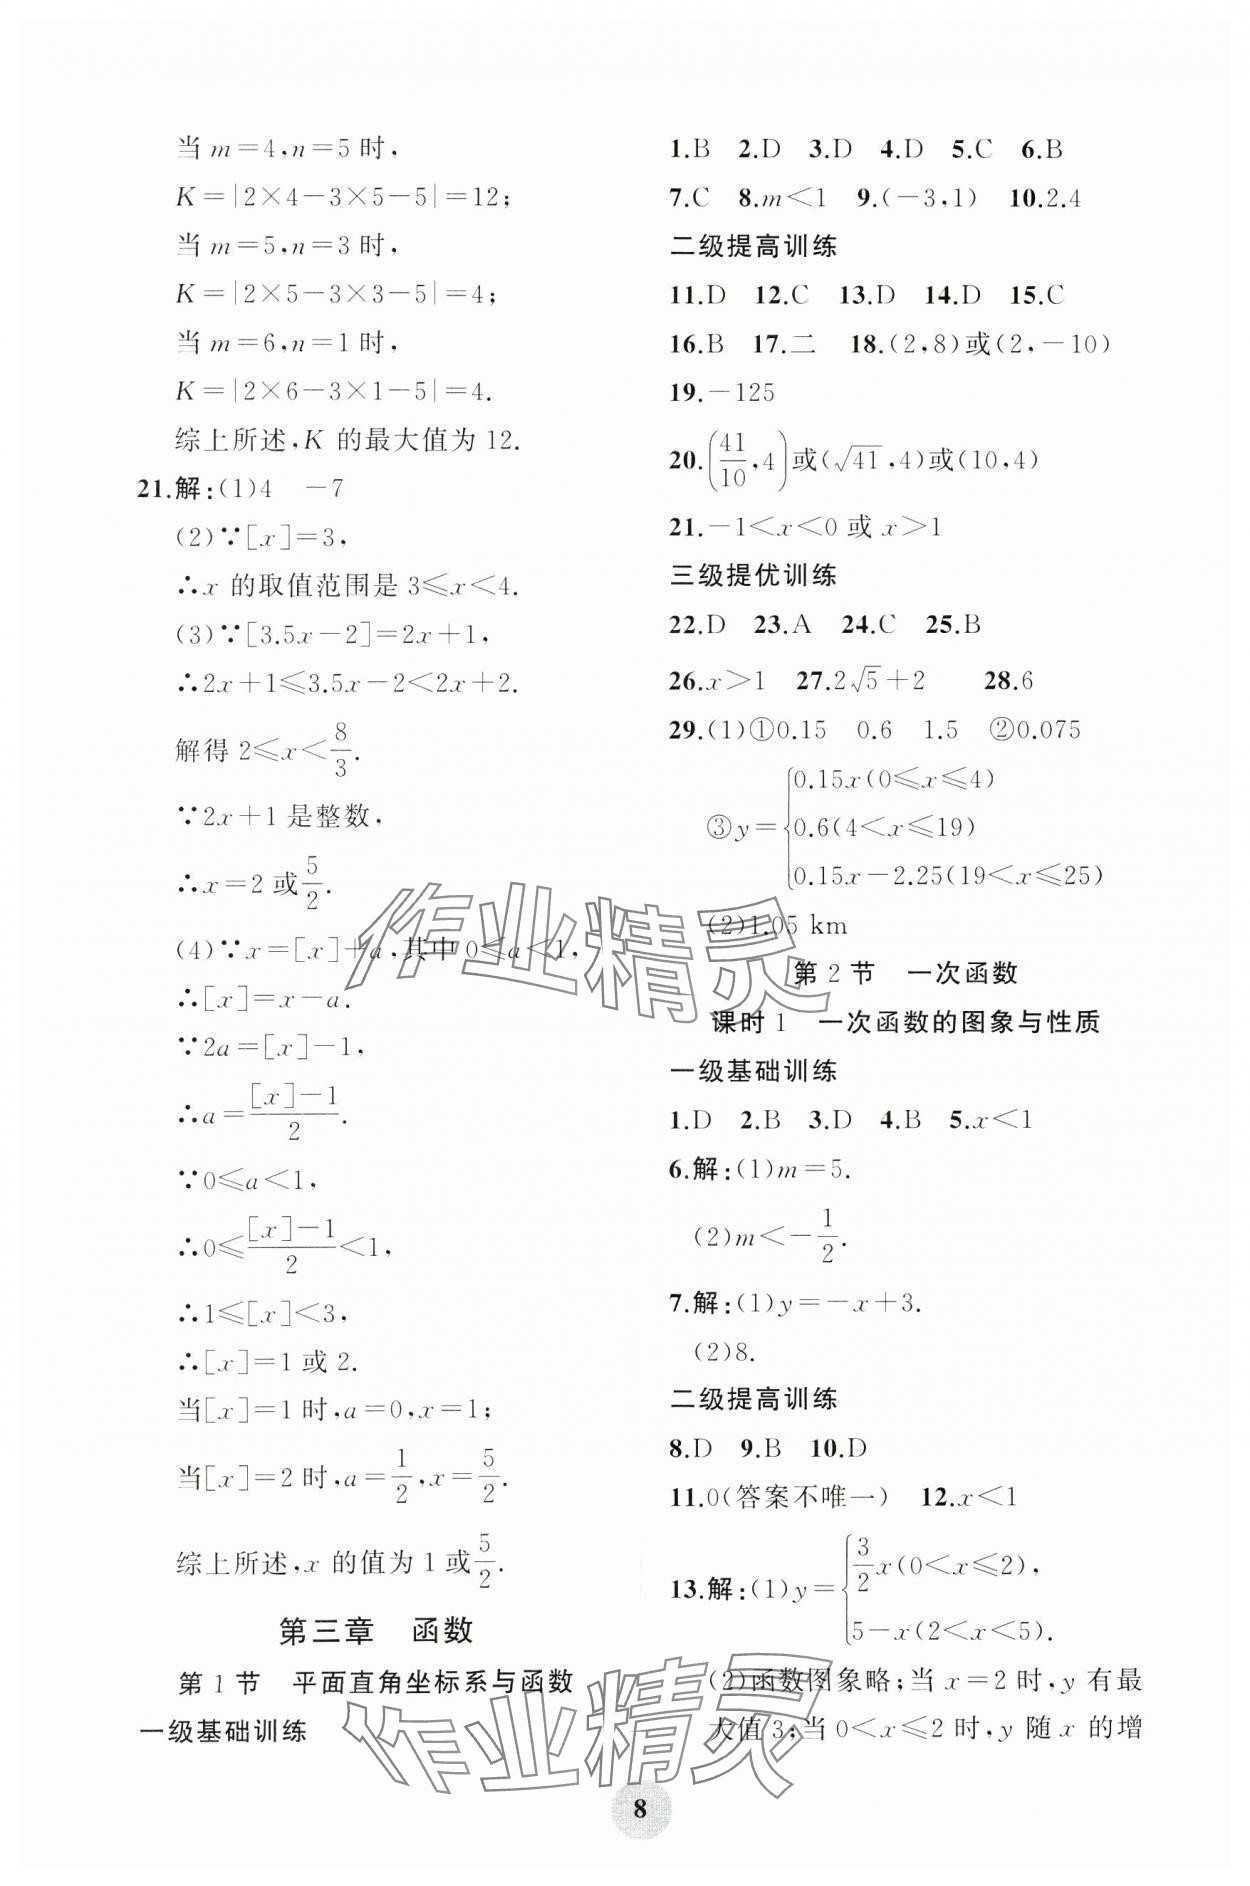 当 m=4,n=5 时,
K=|2×4-3×5-5|=12;
当 m=5,n=3 时,
K=|2×5-3×3-5|=4;
当 m=6,n=1 时,
K=|2×6-3×1-5|=4.
综上所述,K 的最大值为 12.
21.解:(1)4 -7
(2)∵[x]=3,
∴x 的取值范围是 3≤x<4.
(3)∵[3.5x-2]=2x+1,
∴2x+1≤3.5x-2<2x+2.
解得 2≤x<8/3.
∵2x+1 是整数,
∴x=2 或5/2.
(4)∵x=[x]+a,其中 0≤a<1,
∴[x]=x-a.
∵2a=[x]-1,
∴a=([x]-1)/2.
∵0≤a<1,
∴0≤([x]-1)/2<1,
∴1≤[x]<3,
∴[x]=1 或 2.
当[x]=1 时,a=0,x=1;
当[x]=2 时,a=1/2,x=5/2.
综上所述,x 的值为 1 或5/2.
第三章 函数
第 1 节 平面直角坐标系与函数
一级基础训练
1.B 2.D 3.D 4.D 5.C 6.B
7.C 8.m<1 9.(-3,1) 10.2.4
二级提高训练
11.D 12.C 13.D 14.D 15.C
16.B 17.二 18.(2,8)或(2,-10)
19.-125
20.(41/10,4)或(√41,4)或(10,4)
21.-1<x<0 或 x>1
三级提优训练
22.D 23.A 24.C 25.B
26.x>1 27.2√5+2 28.6
29.(1)①0.15 0.6 1.5 ②0.075
③y={0.15x(0≤x≤4)
0.6(4<x≤19)
0.15x-2.25(19<x≤25)
(2)1.05 km
第 2 节 一次函数
课时 1 一次函数的图象与性质
一级基础训练
1.D 2.B 3.D 4.B 5.x<1
6.解:(1)m=5.
(2)m<-1/2.
7.解:(1)y=-x+3.
(2)8.
二级提高训练
8.D 9.B 10.D
11.0(答案不唯一) 12.x<1
13.解:(1)y={3/2x(0<x≤2),
5-x(2<x<5).
(2)函数图象略;当 x=2 时,y 有最
大值 3;当 0<x≤2 时,y 随 x 的增
8
作业精灵
作业精灵